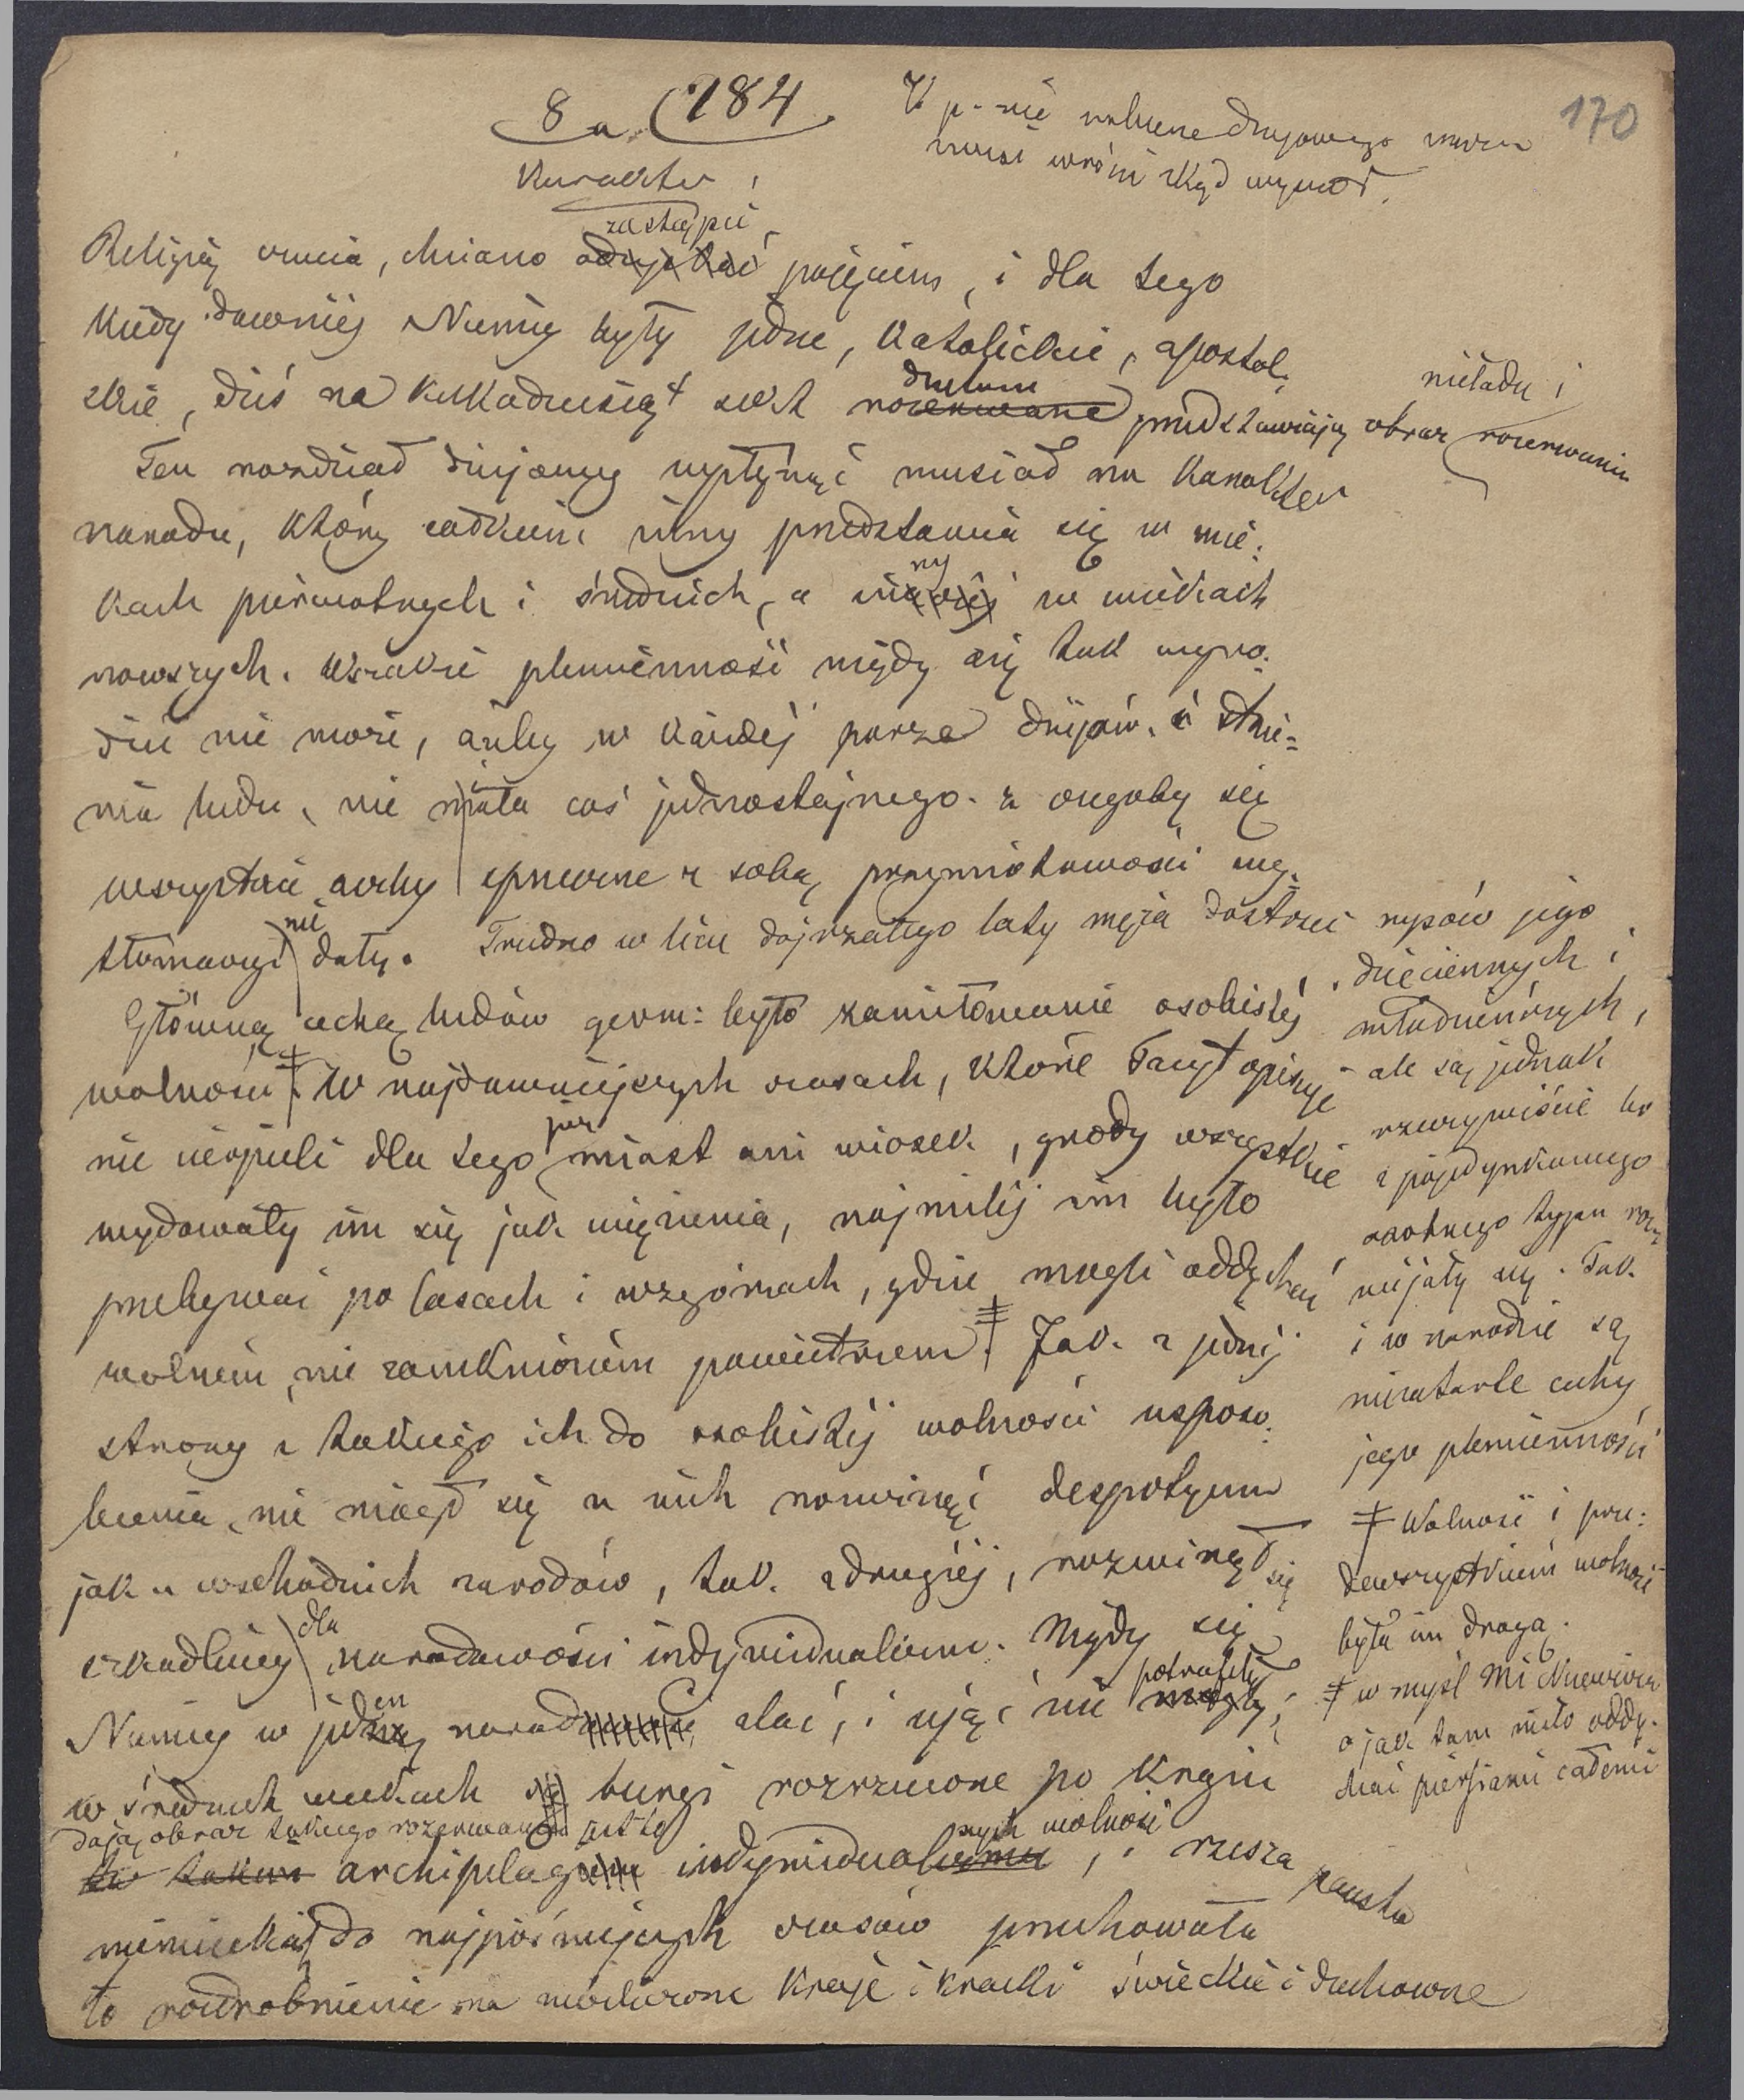 8a (184
170
W p-nie
musi wrócić skąd wyszedł.
Karakter
zastąpić
Religią czucia, chciano pojęciem, i dla tego
kiedy dawniej Niemcy były jedne, katolickie, apostol-
skie, dziś na kilkadziesiąt sekt rozerwane przedstawiają obraz nieładu i rozerwania
Ten rozdział dziejowy wpłynąć musiał na karakter
narodu, który całkiem inny przedstawia się w wie-
kach pierwotnych i średnich, a inny w wiekach
nowszych. Wszakże plemienność nigdy się tak wyro-
dzić nie może, ażeby w każdej porze dziejów i istnie-
nia ludu, nie miała coś jednostajnego. z czegoby się
wszystkie cechy sprzeczne z sobą przymiotowości wy-
tłómaczyć nie dały. Trudno w licu dojrzałego laty męża dostrzec rysów jego
dziecinnych i
młodzieńczych,
ale są jednak
rzeczywiście bo
z pojedynkowego
osobnego typu roz
wijały się. Tak
i w narodzie są
niezatarte cechy
jego plemienności
Główną cechą ludów germ: było zamiłowanie osobistej
wolności ‡. W najdawniejszych czasach, które Tacyt opisuje
nie cierpieli dla tego już miast ani wiosek, grody wszystkie
wydawały im się jak więzienia, najmilej im było
przebywać po lasach i wzgórzach, gdzie mogli oddychać
wolnem, nie zamkniętem powietrzem ‡. Jak z jednej
strony z takiego ich do osobistej wolności usposo-
bienia, nie mógł się u nich rozwinąć despotyzm
jak u wschodnich narodów, tak z drugiej, rozwinął się
szkodliwy dla narodowości indywidualizm. Nigdy się
Niemcy w jeden naród zlać, i ująć nie potrafiły;
w średnich wiekach burgi rozrzucone po kraju
dają obraz takiego rozerwania jest to
archipelag indywidualnych wolności, i rzesza państw
niemieckich do najpóźniejszych czasów przechowała
to rozdrobnienie na niezliczone kraje i kraiki świeckie i duchowne
‡ Wolność i prze-
dewszystkiem wolność
była im drogą.
‡ w myśl
o jak tam miło oddy-
chać piersiami całemi